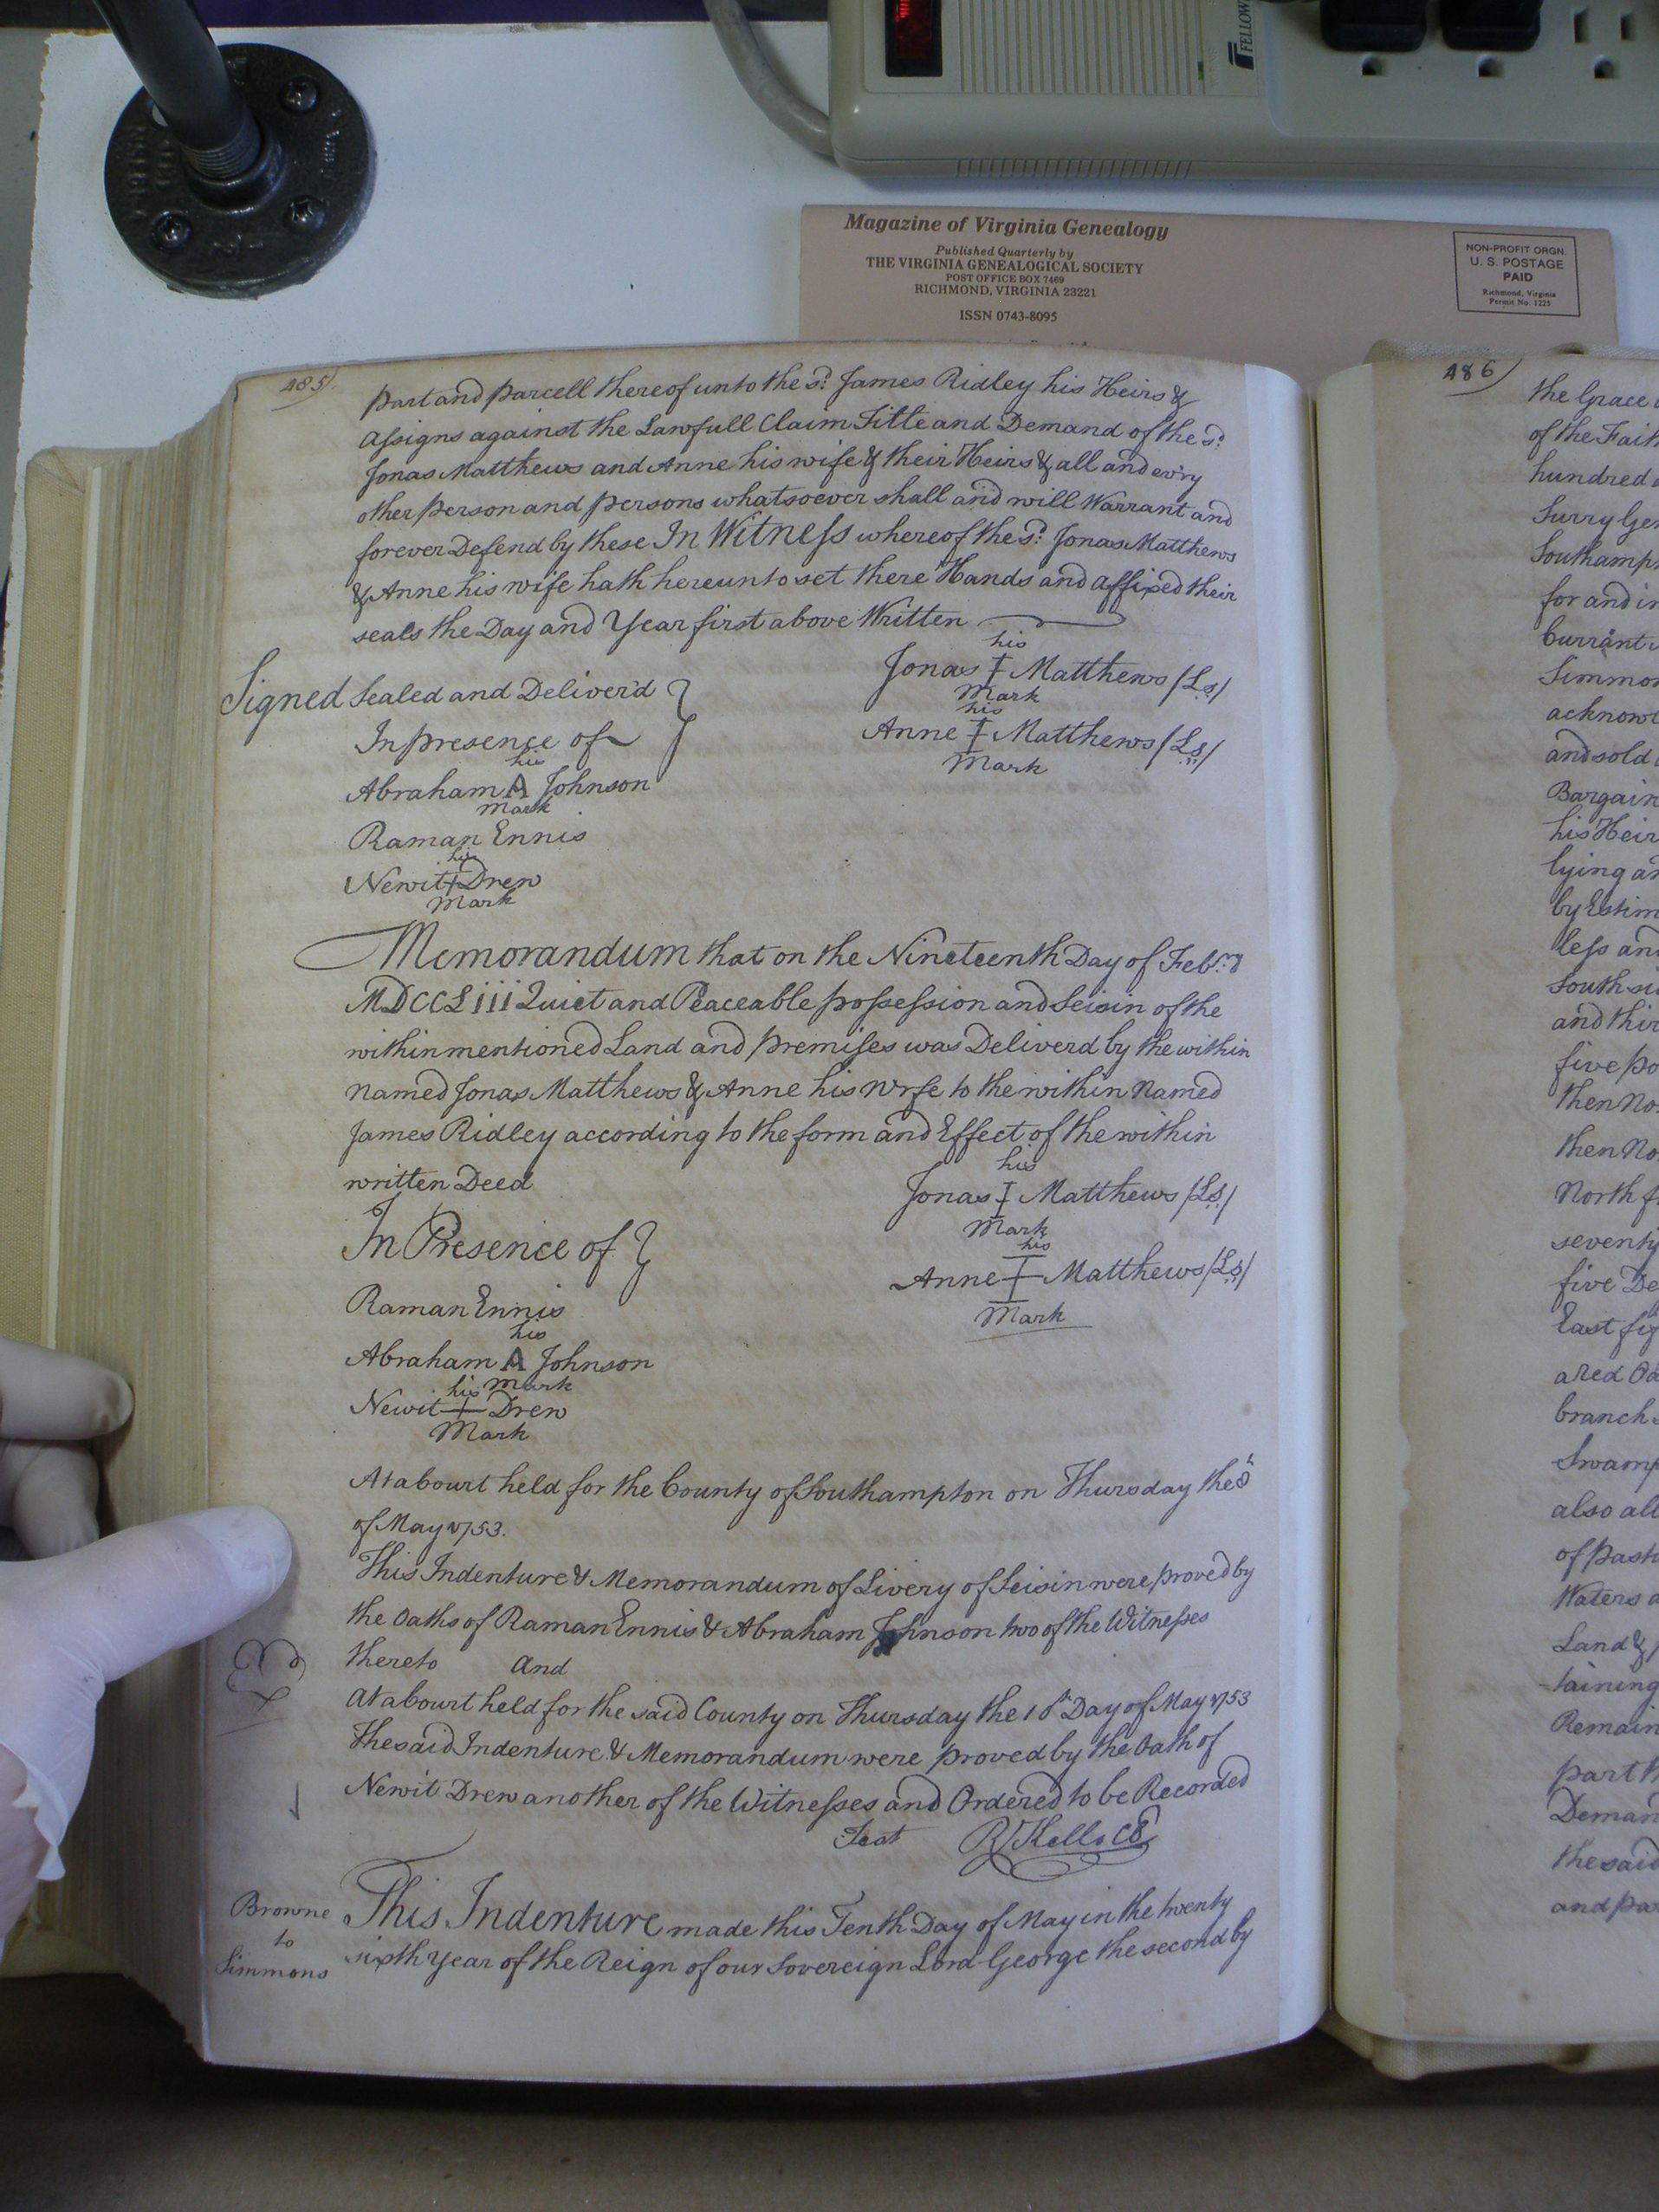 FELLOW
Magazine of Virginia Genealogy
Published Quarterly by
THE VIRGINIA GENEALOGICAL SOCIETY
POST OFFICE BOX 7469
RICHMOND, VIRGINIA 23221
ISSN 0743-8095
NON-PROFIT ORGN.
U. S. POSTAGE
PAID
Richmond, Virginia
Permit No. 1225
485
part and parcell thereof unto the sd. James Ridley his Heirs &
assigns against the Lawfull Claim Title and Demand of the sd.
Jonas Matthews and Anne his wife & their Heirs & all and ev'ry
other person and persons whatsoever shall and will Warrant and
forever Defend by these In Witness whereof the sd. Jonas Matthews
& Anne his wife hath hereunto set there Hands and affixed their
seals the Day and Year first above Written
his
Jonas I Matthews /Ls/
Mark
his
Anne I Matthews /Ls/
Mark
Signed Sealed and Deliver'd
In presence of
his
Abraham A Johnson
Mark
Raman Ennis
his
Newit + Drew
Mark
Memorandum that on the Nineteenth Day of Feb.
MDCCLiii Quiet and Peaceable possession and Seisin of the
within mentioned Land and premises was Deliverd by the within
Named Jonas Matthews & Anne his Wife to the within Named
James Ridley according to the form and Effect of the within
written Deed
his
Jonas I Matthews /Ls/
Mark
his
Anne I Matthews /Ls/
Mark
In Presence of
Raman Ennis
his
Abraham A Johnson
Mark
his
Newit + Drew
Mark
At a Court held for the County of Southampton on Thursday the
of May 1753.
This Indenture & Memorandum of Livery of Seisin were proved by
the Oaths of Raman Ennis & Abraham Johnson two of the Witnesses
thereto And
At a Court held for the said County on Thursday the 10th Day of May 1753
The said Indenture & Memorandum were proved by the Oath of
Newit Drew another of the Witnesses and Ordered to be Recorded
Test R Kello CC
Browne
to
Simmons
This Indenture made this Tenth Day of May in the twenty
sixth Year of the Reign of our Sovereign Lord George the second by
486
the Grace
of the Fait
hundred
Surry Gen
Southamp
for and in
Currant
Simmon
acknowl
and sold
Bargain
his Heir
lying an
by Estim
less and
South si
and thir
five po
then No
then No
North f
seventy
five De
East fif
a Red Oa
branch
Swamp
also all
of past
Waters a
Land &
taining
Remain
part th
Deman
the said
and pa